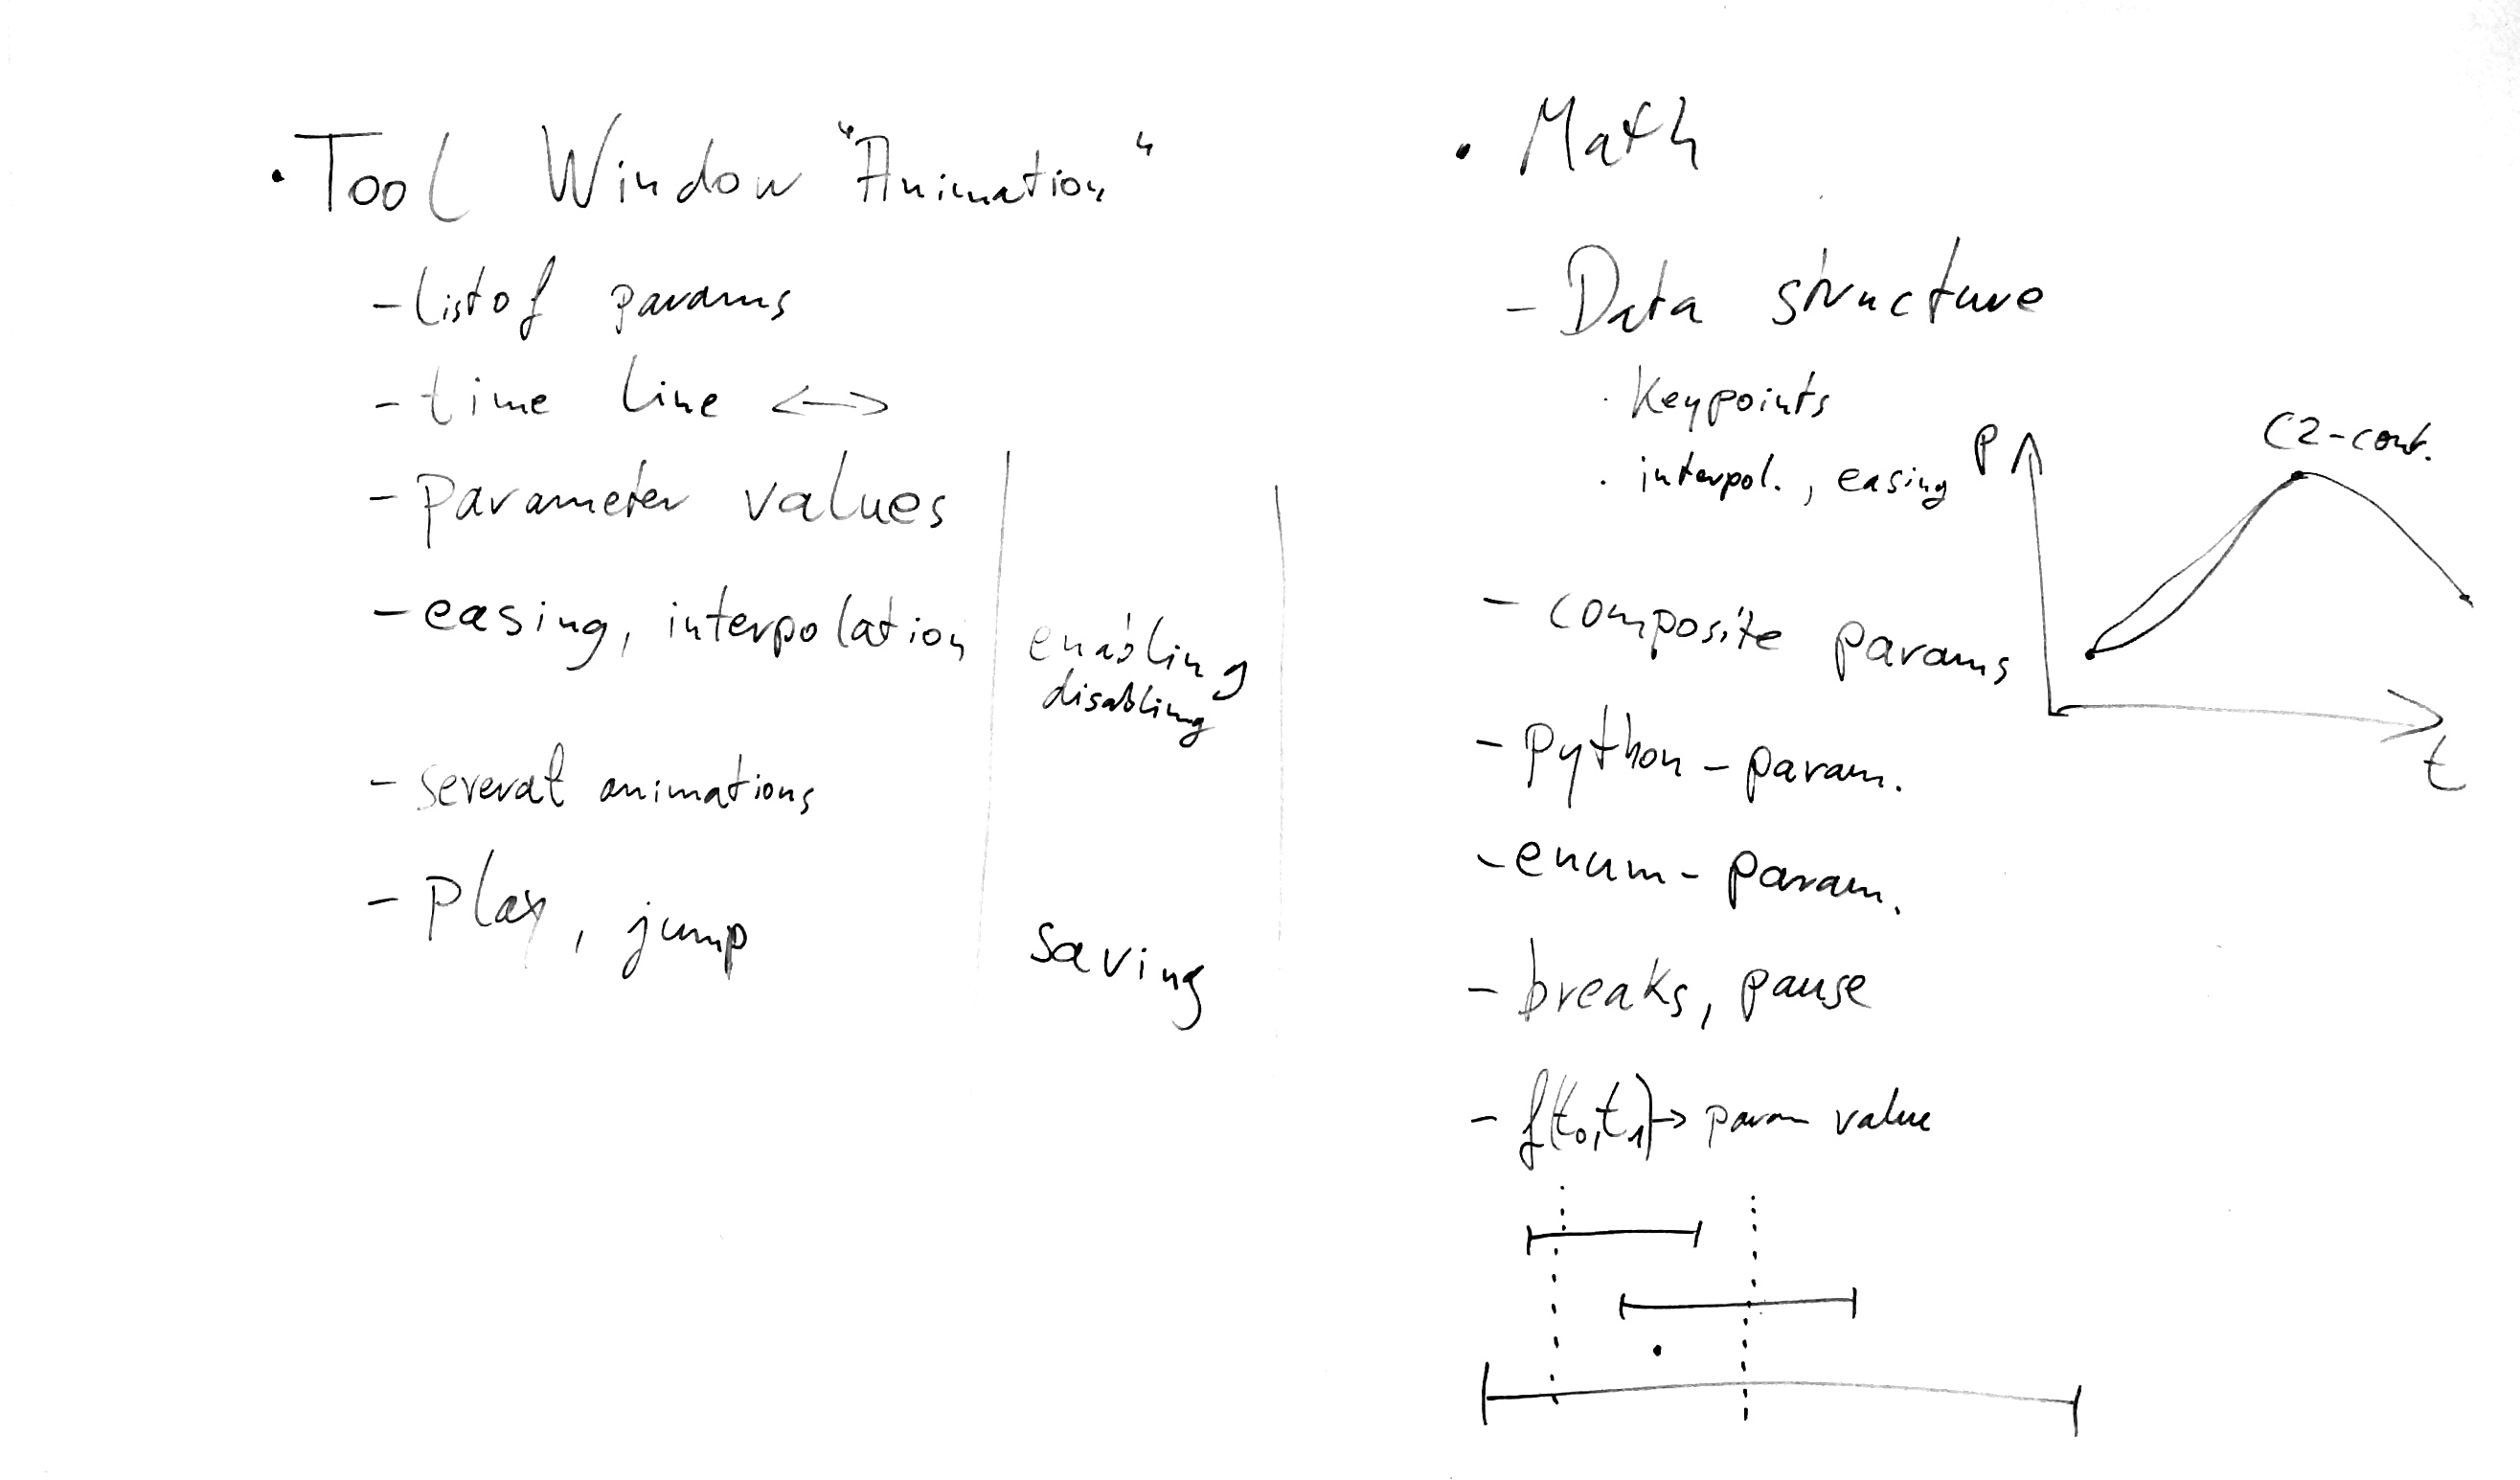 • Tool Window "Animation"
- list of params
- time line <->
- parameter values
- easing, interpolation
- several animations
- Play, jump
enabling
disabling
saving
• Math
- Data structure
· Keypoints
· interpol., easing
- composite params
- Python - param.
- enum - param.
- breaks, pause
- f(t₀,t₁) → param value
P
C2-cont.
t